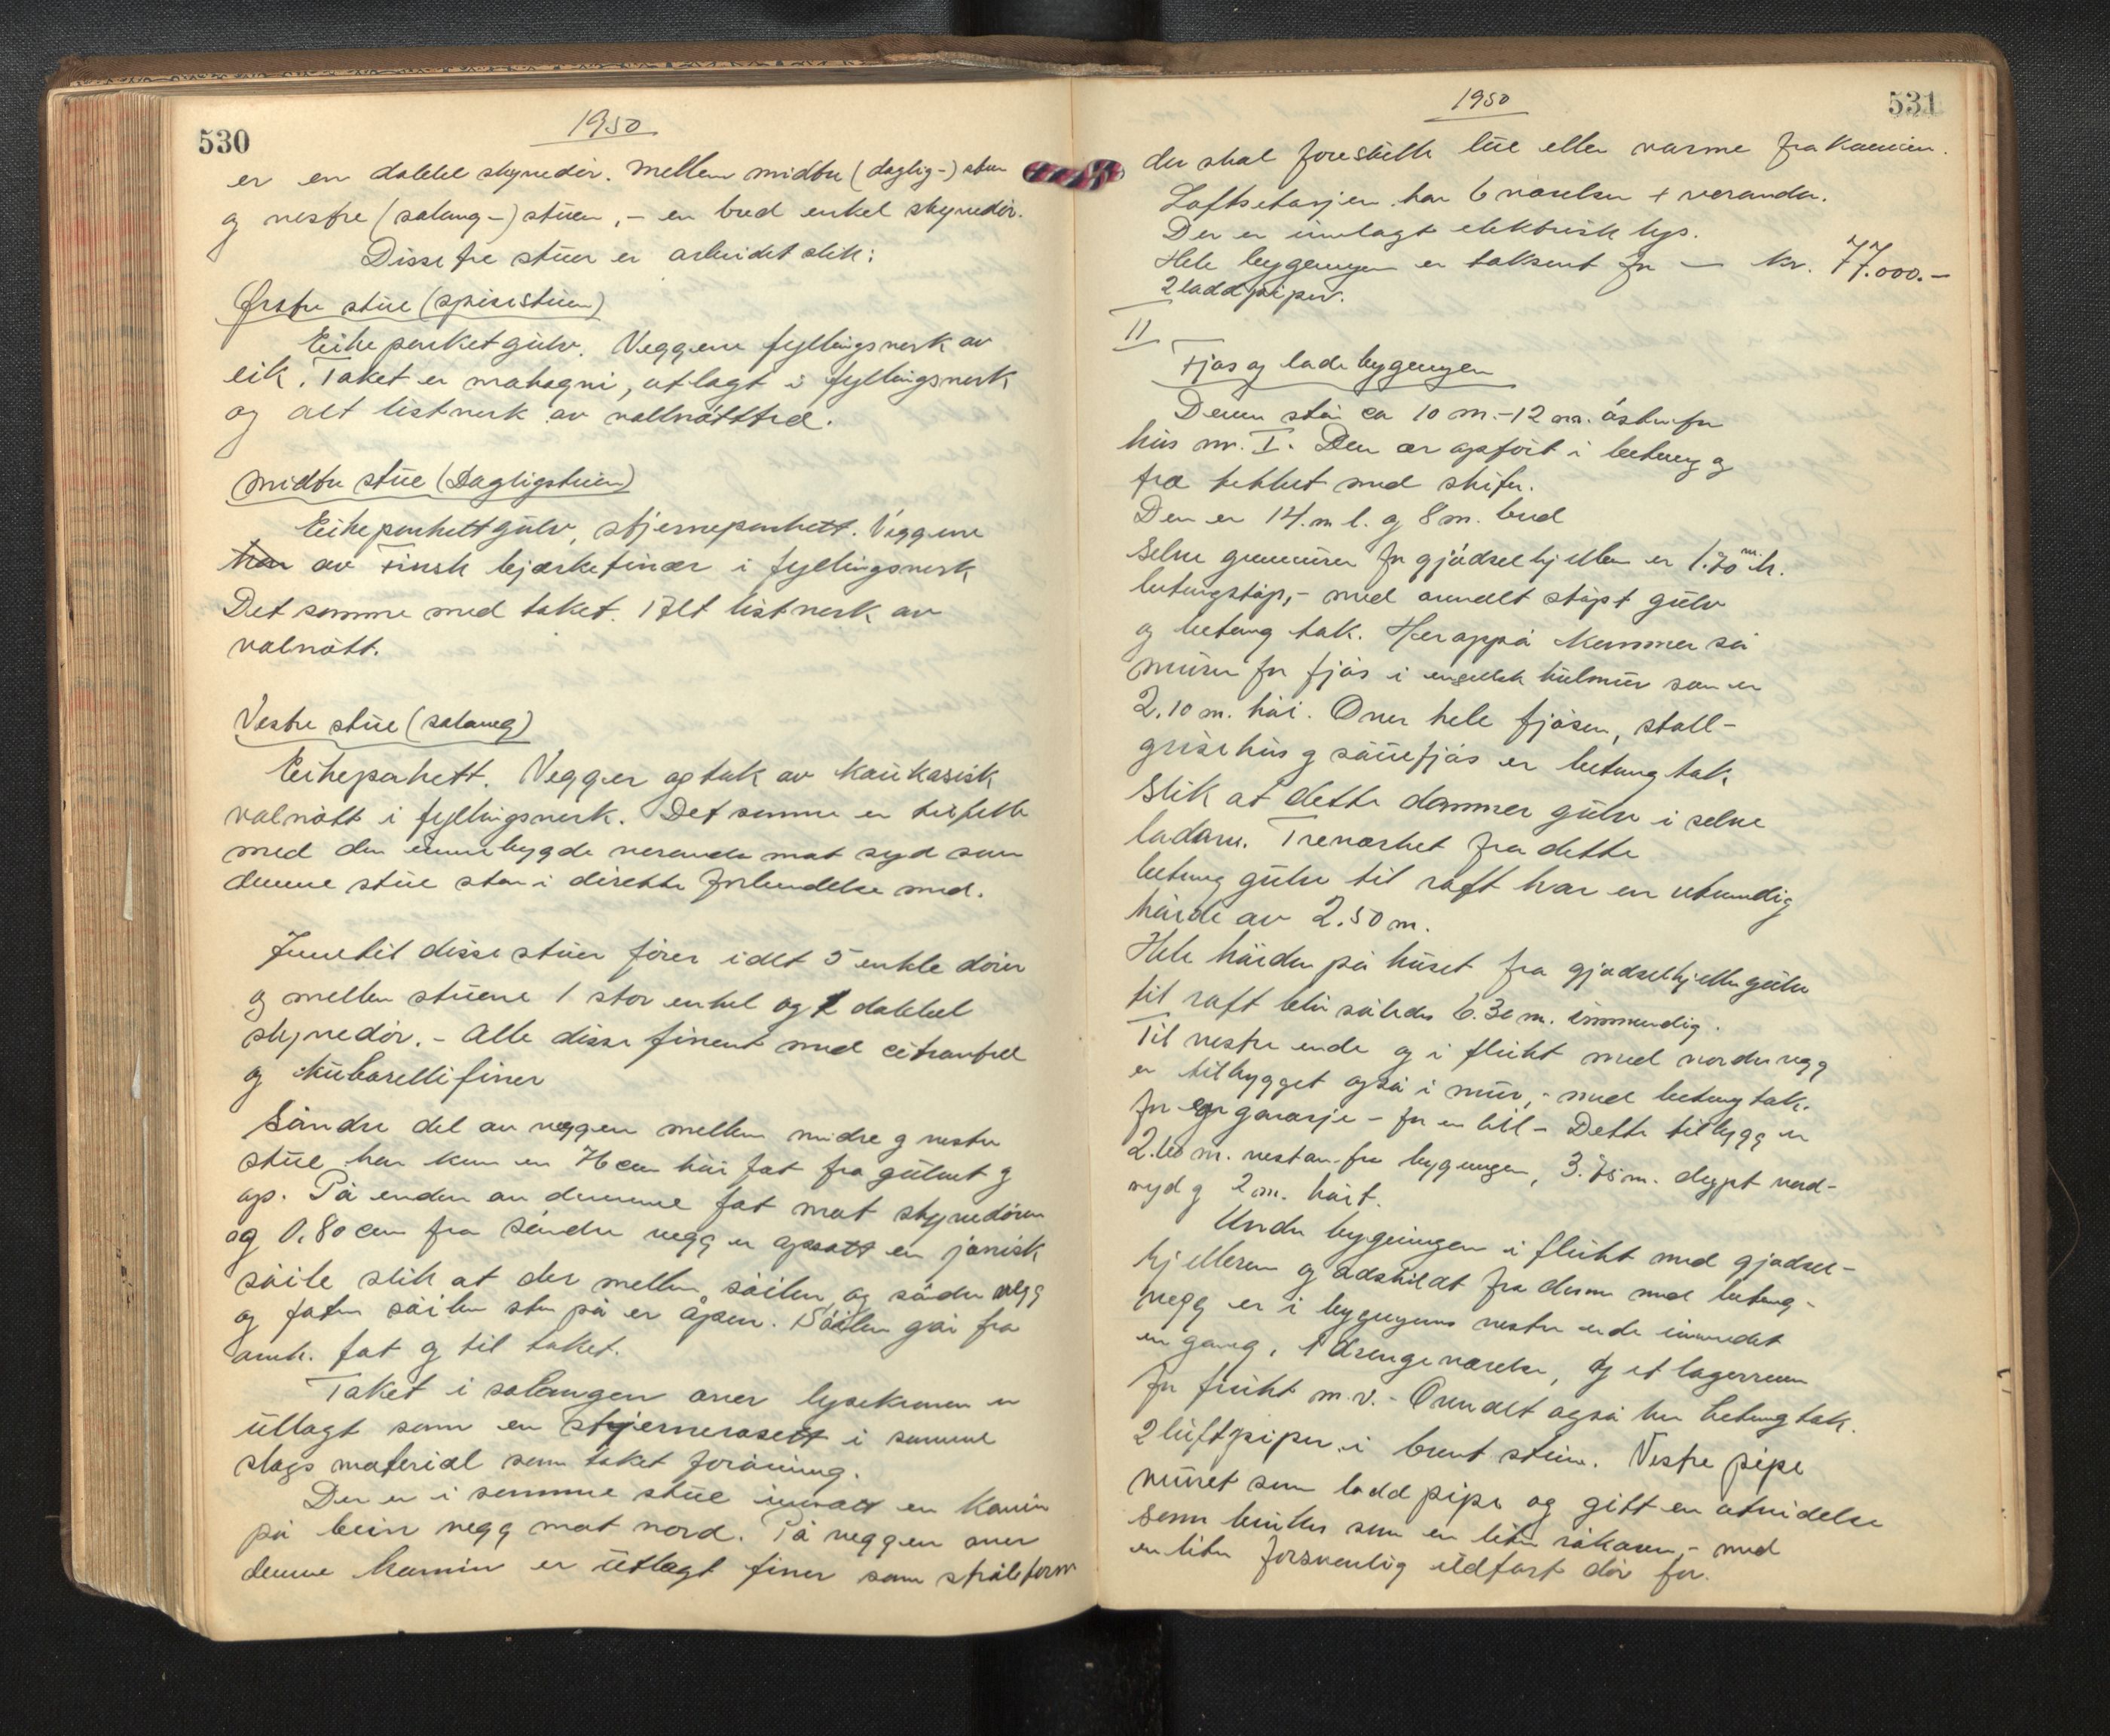 530
1950
er en dobbel skyvedör. Mellem midtre (daglig-) stuen
og vestre (salong-) stuen, - en bred enkel skyvedör.
Disse tre stuer er arbeidet slik:
Östre stue (spisestuen)
Eikeparketgulv. Veggene fyllingsverk av
eik. Taket er mahogni, utlagt i fyllingsverk
og alt listverk av vallnötttre.
Midtre stue (Dagligstuen)
Eikeparkettgulv, stjerneparkett. Veggene
av Finsk bjerkefinær i fyllingsverk
Det samme med taket. Alt listverk av
valnött.
Vestre stue (salong)
Eikeparkett. Vegger og tak av Kaukasisk
valnött i fyllingsverk. Det samme er tilfelle
med den innebygde veranda mot syd som
denne stue star i direkte forbindelse med.
Inn til disse stuer förer i alt 5 enkle dörer
og mellem stuene 1 stor enkel og 1 dobbel
skyvedör. - Alle disse finert med citrontre
og finer
Söndre del av veggen mellem midre og vestre
stue har kun en 76 cm höi fot fra gulvet og
op. På enden av denne fot mot skyvedören
og 0,80 cm fra söndre vegg er opsatt en jonisk
söile slik at der mellem söilen og söndre vegg
og foten söilen står på er åpen. Söilen går fra
omh. fot og til taket.
Taket i salongen over lysekronen er
utlagt som en stjernerosett i samme
slags material som taket foröving.
Der er i samme stue innsatt en Kamin
på bein vegg mot nord. På veggen over
denne kamin er utlagt finer som stråleform
1950
531
der skal forestille lue eller varme fra Kaminen.
Loftsetasjen har 6 værelser + veranda.
Der er innlagt elektrisk lys.
Hele bygningen er taksert for — kr. 77.000.-
2 loddpiper.
II
Fjös og ladebygningen
Denne står ca 10 m.-12 m. östenfor
hus nr. I. Den er opfört i betong og
tre tekket med skifer.
Den er 14. m l. og 8 m. bred
Selve grunmuren for gjödselkjelleren er 1.70 m. h.
betongstöp, - med overalt stöpt gulv
og betong tak. Her oppå kommer så
muren for fjös i engelsk hulmur som er
2.10 m. höi. Over hele fjösen, stall-
grisehus og sauefjös er betong tak,
slik at dette dammer gulv i selve
ladaen. Treverket fra dette
betong gulv til raft har en utvendig
höide av 2.50 m.
Hele höiden på huset fra gjödselkjellergulv
til raft blir således 6.30 m. innvendig.
Til vestre ende og i flukt med nordre vegg
er tilbygget også i mur, - med betongtak.
for garasje - for en bil - Dette tilbygg er
2.60 m. vestan-fra bygningen, 3.75 m. dypt nord-
syd og 2 m. höit.
Under bygningen i flukt med gjödsel-
kjelleren og adskildt fra denne med betong-
vegg er i bygningens vestre ende innredet
en gang, 1 drengeværelse, og et lagerrum
for frukt m.v. - Overalt også her betongtak.
2 luftpiper i brent stein. Vestre pipe
muret som loddpipe og gitt en utvidelse
som benttes som en liten råkovn, - med
en liten forsvarlig ildfast dör for.